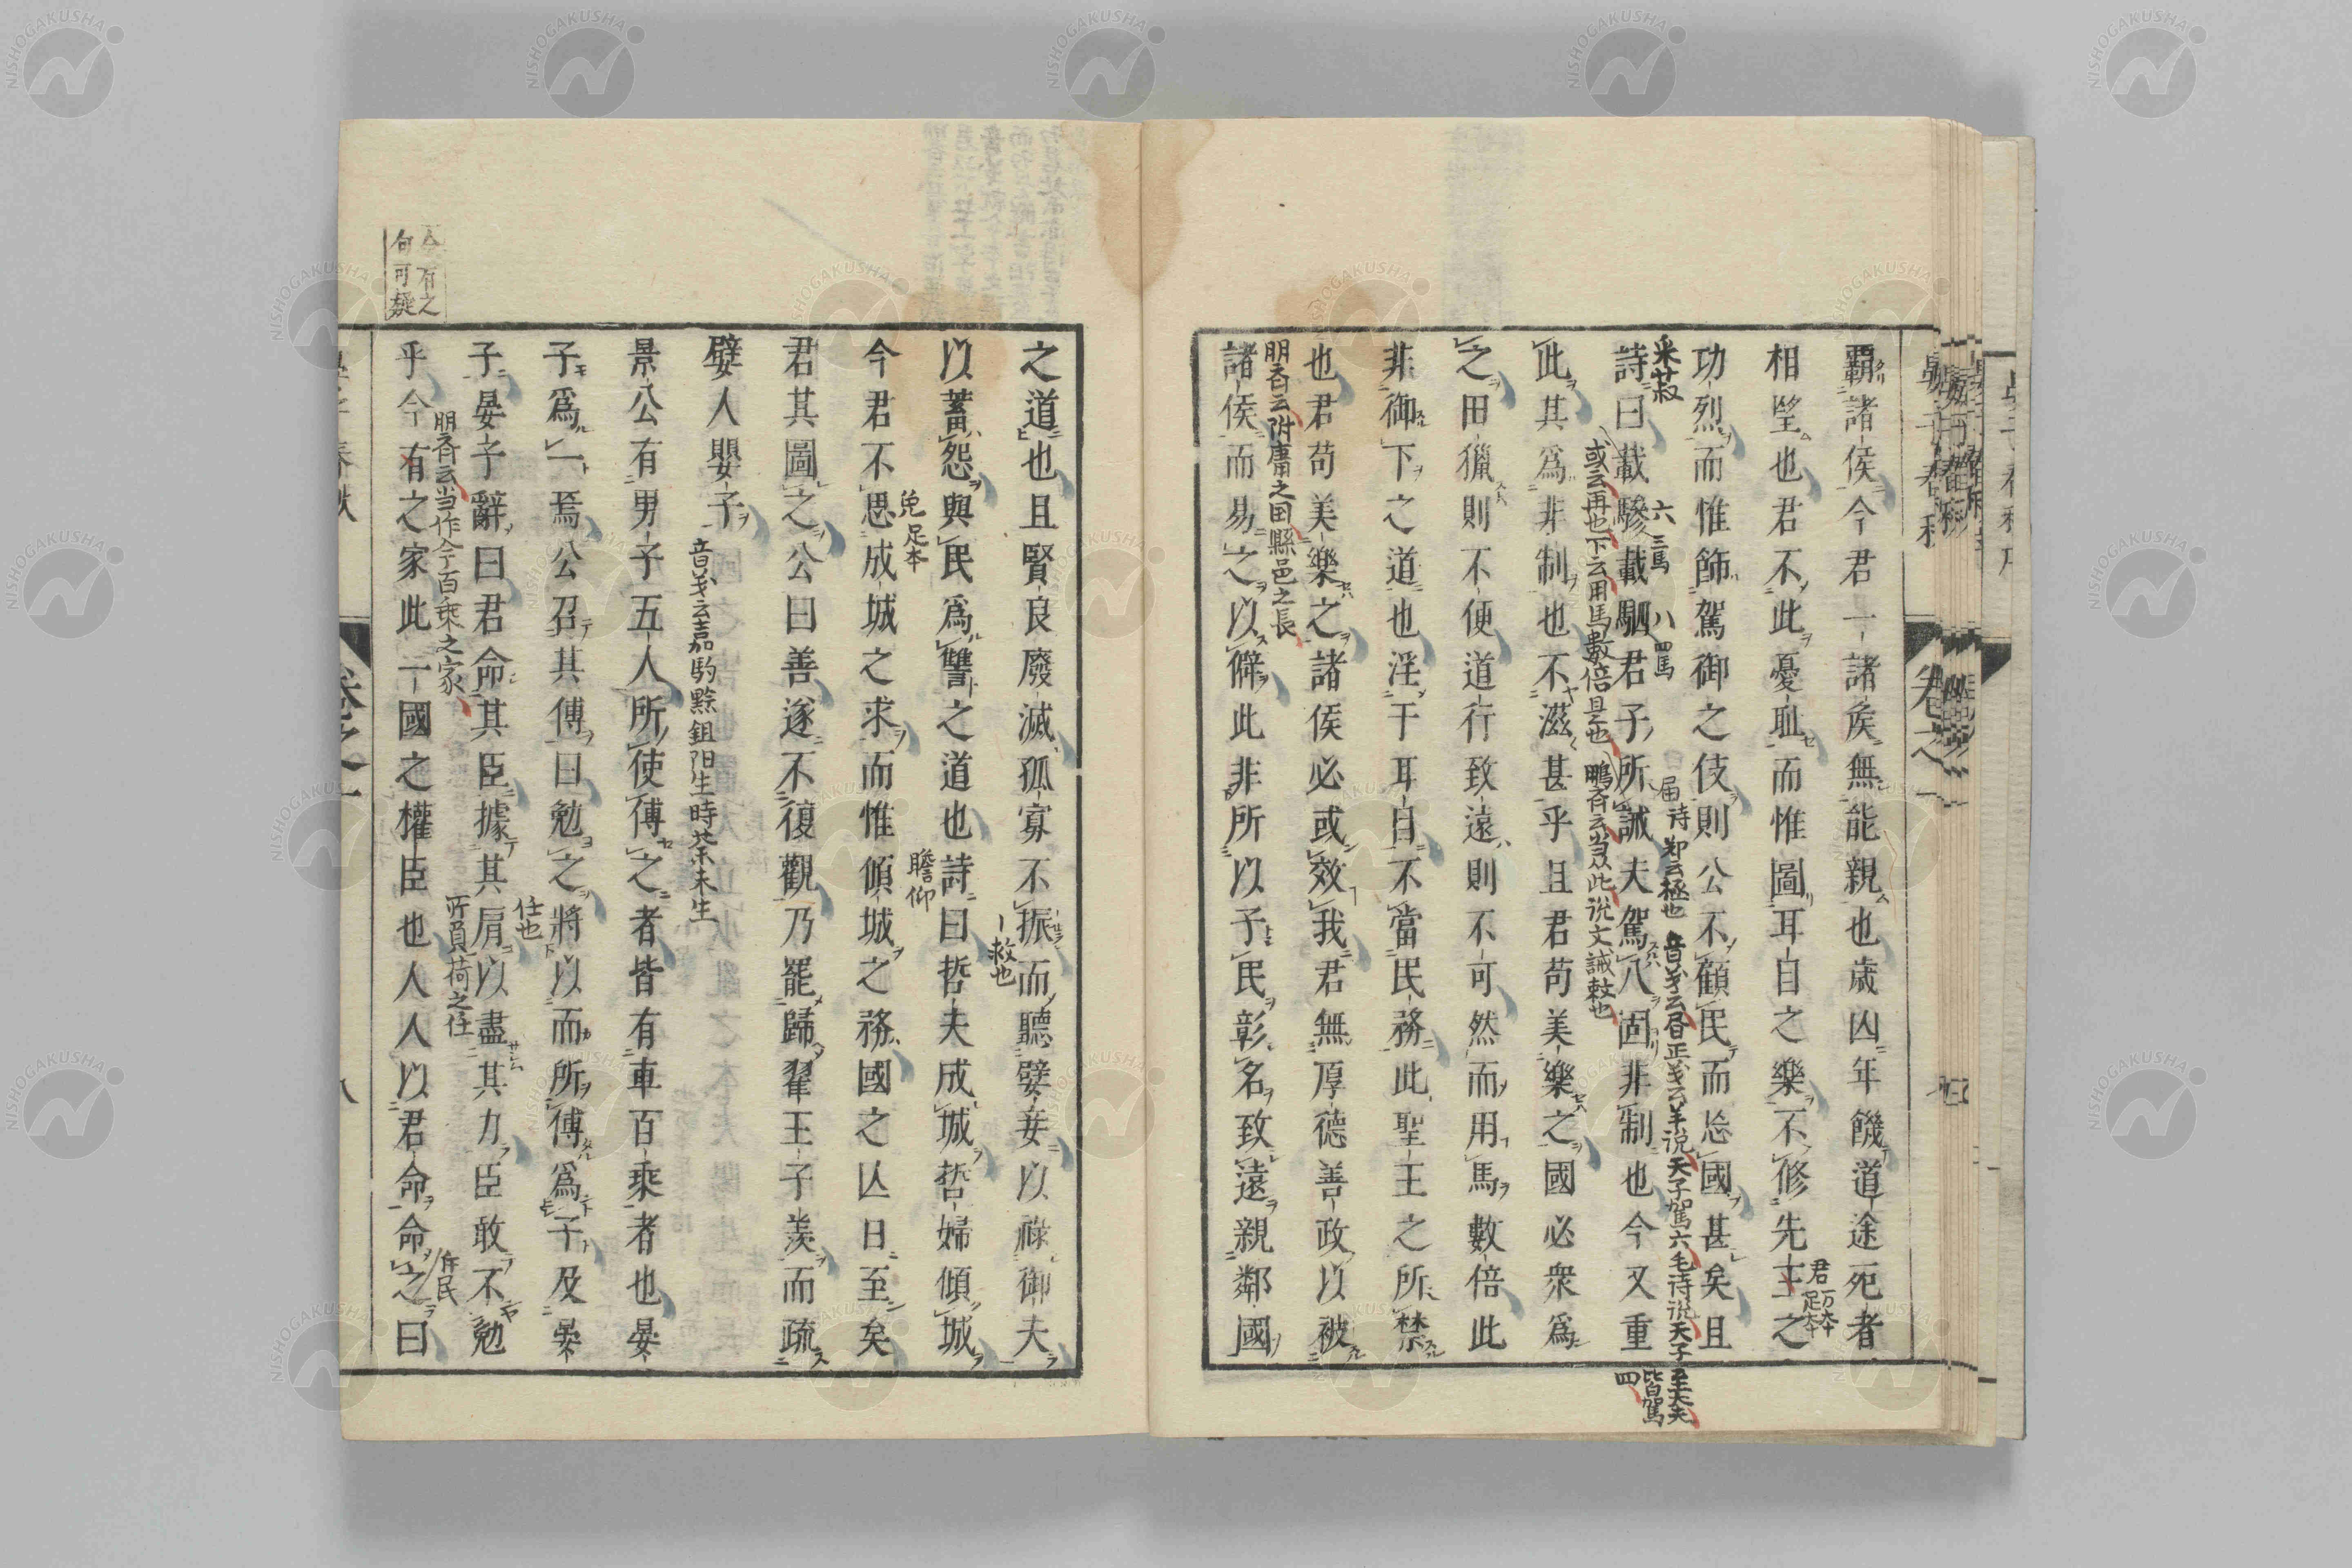 霸諸侯今君一諸侯無能親也歲凶年饑道途死者
相望也君不此憂耻而惟圖耳目之樂不修先王之
君 万本足本
功烈而惟飾駕御之伎則公不顧民而忘國甚矣且
采菽
六 三馬 八 四馬
届 诗 知云極也
詩曰載驂載駟君子所誡夫駕八固非制也今又重
或云再也下云用馬數倍是也
鵬斎云当从此说文誡敕也
此其為非制也不滋甚乎且君苟美樂之國必衆為
之田獵則不便道行致遠則不可然而用馬數倍此
非御下之道也淫于耳目不當民務此聖王之所禁
也君苟美樂之諸侯必或效我君無厚德善政以被
朋斎云附庸之田縣邑之長
諸侯而易之以僻此非所以子民彰名致遠親鄰國
之道也且賢良廢滅孤寡不振而聽嬖妾以祿御夫
救也
以蓄怨與民爲讐之道也詩曰哲夫成城哲婦傾城
瞻仰
今君不思成城之求而惟傾城之務國之亾日至矣
足本
君其圖之公曰善遂不復觀乃罷歸翟王子羨而疏
嬖人嬰子
景公有男子五人所使傅之者皆有車百乘者也晏
子爲一焉公召其傅曰勉之將以而所傅爲子及晏
任也
子晏子辭曰君命其臣據其肩以盡其力臣敢不勉
所負荷之任
朋斎云当作今百乘之家
乎今有之家此一國之權臣也人人以君命命之曰
今有之
句可疑
卷之一
八